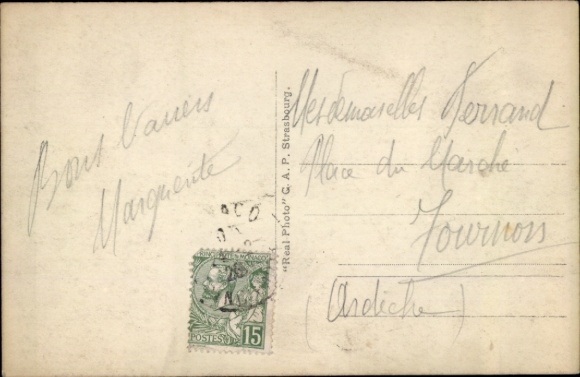 Bons Baisers
Marguerite
"Real Photo" C. A. P. Strasbourg.
Mesdemoiselles Ferrand
Place du Marché
Tournon
(Ardèche)
POSTES
15